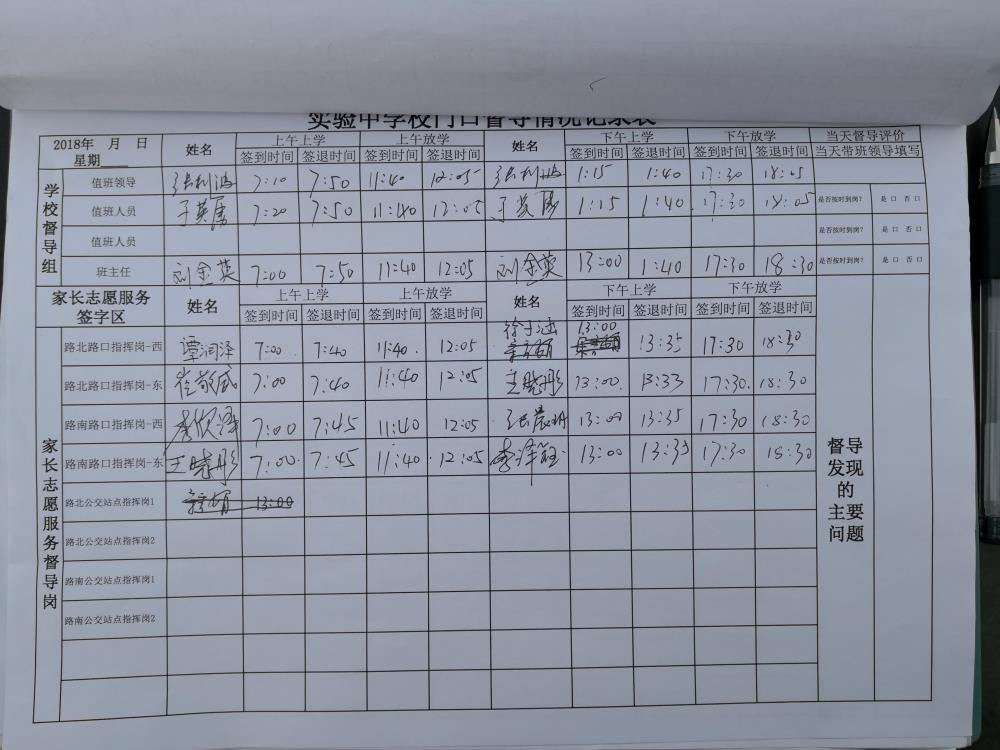 实验中学校门口督导情况记录表
2018年 月 日 星期 姓名 上午上学 上午放学 姓名 下午上学 下午放学 当天督导评价
签到时间 签退时间 签到时间 签退时间 签到时间 签退时间 签到时间 签退时间 当天带班领导填写
学校督导组
值班领导 7:10 7:50 11:40 12:05 1:15 1:40 17:30 18:05
值班人员 于英勇 7:20 7:50 11:40 12:05 于英勇 1:15 1:40 17:30 18:05 是否按时到岗? 是口 否口
值班人员 是否按时到岗? 是口 否口
班主任 刘金英 7:00 7:50 11:40 12:05 刘金英 13:00 1:40 17:30 18:30 是否按时到岗? 是口 否口
家长志愿服务签字区 姓名 上午上学 上午放学 姓名 下午上学 下午放学
签到时间 签退时间 签到时间 签退时间 签到时间 签退时间 签到时间 签退时间
家长志愿服务督导岗
路北路口指挥岗-西 谭润泽 7:00 7:40 11:40 12:05 徐子涵 13:00 13:35 17:30 18:30
路北路口指挥岗-东 崔敬威 7:00 7:40 11:40 12:05 王晓彤 13:00 13:33 17:30 18:30
路南路口指挥岗-西 李欣泽 7:00 7:45 11:40 12:05 13:00 13:35 17:30 18:30
路南路口指挥岗-东 王晓彤 7:00 7:45 11:40 12:05 李泽钰 13:00 13:35 17:30 18:30
路北公交站点指挥岗1 13:00
路北公交站点指挥岗2
路南公交站点指挥岗1
路南公交站点指挥岗2
督导发现的主要问题